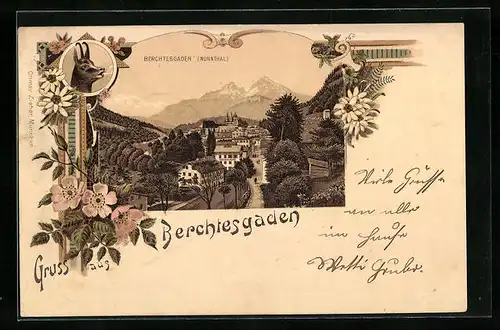 BERCHTESGADEN (NONNTHAL)
Ottmar Zieher, München
Gruss aus
Berchtesgaden
Viele Grüsse
an alle
im Hause
Wetti Gruber.